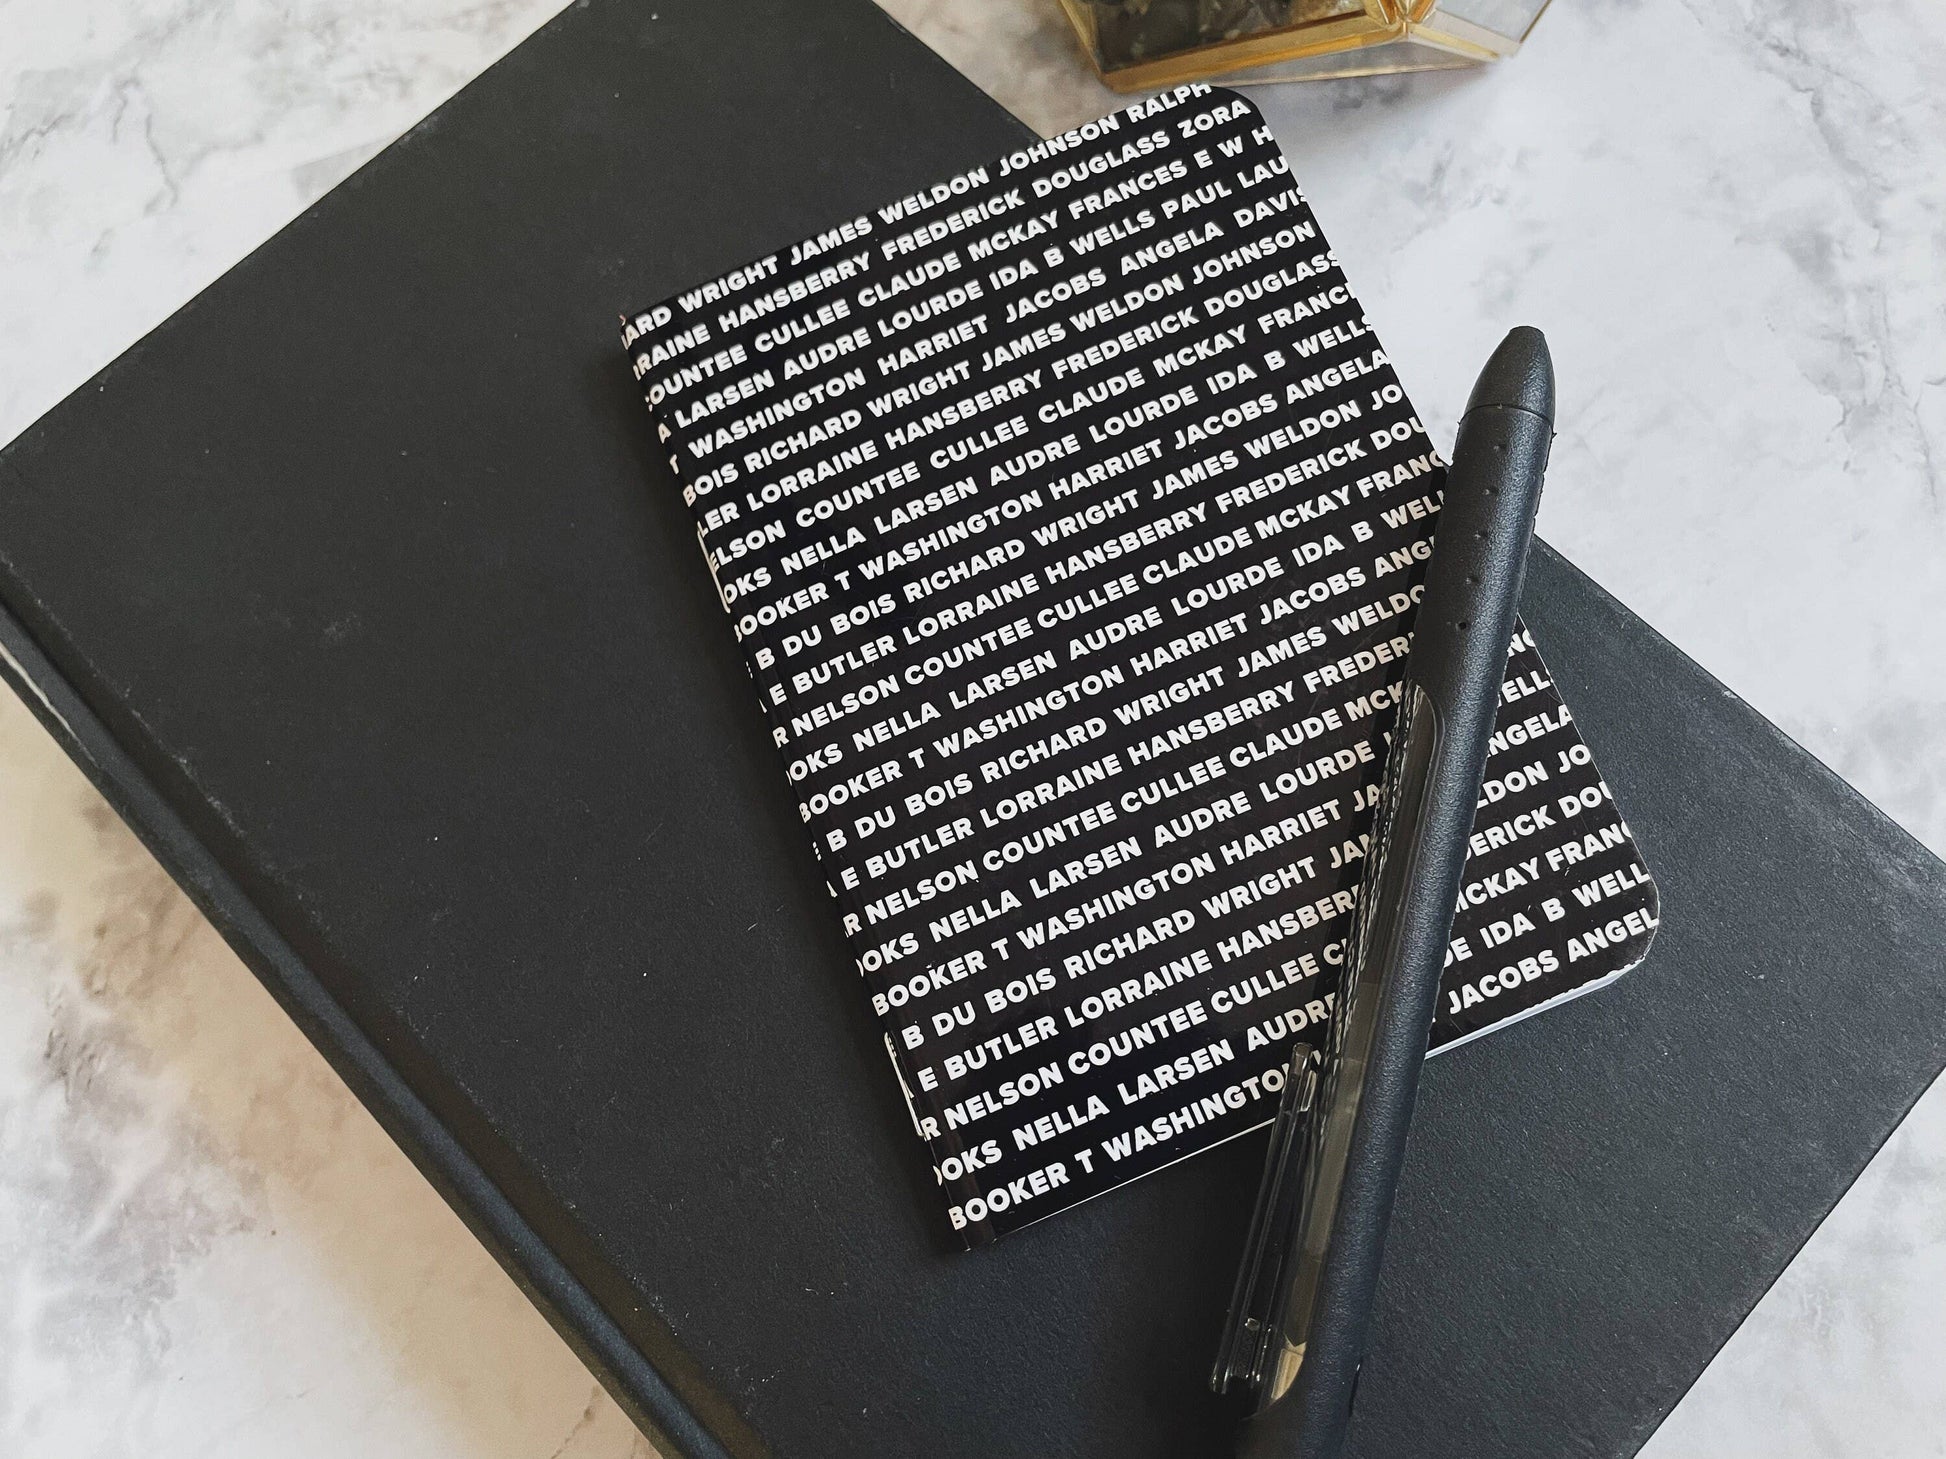 ARD WRIGHT JAMES WELDON JOHNSON RALPH
RAINE HANSBERRY FREDERICK DOUGLASS ZORA
OUNTEE CULLEE CLAUDE MCKAY FRANCES E W H
A LARSEN AUDRE LOURDE IDA B WELLS PAUL LAU
T WASHINGTON HARRIET JACOBS ANGELA DAVIS
BOIS RICHARD WRIGHT JAMES WELDON JOHNSON
LER LORRAINE HANSBERRY FREDERICK DOUGLASS
ELSON COUNTEE CULLEE CLAUDE MCKAY FRANC
OKS NELLA LARSEN AUDRE LOURDE IDA B WELLS
BOOKER T WASHINGTON HARRIET JACOBS ANGELA
B DU BOIS RICHARD WRIGHT JAMES WELDON JO
E BUTLER LORRAINE HANSBERRY FREDERICK DOU
R NELSON COUNTEE CULLEE CLAUDE MCKAY FRANC
OOKS NELLA LARSEN AUDRE LOURDE IDA B WELL
BOOKER T WASHINGTON HARRIET JACOBS ANG
B DU BOIS RICHARD WRIGHT JAMES WELDO
E BUTLER LORRAINE HANSBERRY FREDER
R NELSON COUNTEE CULLEE CLAUDE MCK
OOKS NELLA LARSEN AUDRE LOURDE ELL
BOOKER T WASHINGTON HARRIET JA NGELA
B DU BOIS RICHARD WRIGHT JA LDON JO
E BUTLER LORRAINE HANSBER ERICK DOU
R NELSON COUNTEE CULLEE C CKAY FRANC
OOKS NELLA LARSEN AUDR DE IDA B WELL
BOOKER T WASHINGTO JACOBS ANGEL